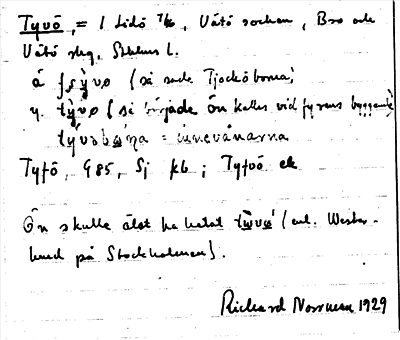 Tyvö, = 1 Lidö ⁷/₁₆, Vätö socken, Bro och
Vätö skg, Sthlms l.
å ʃɕỳvø (så sade Tjocköborna;
y. tỳvø (så började ön kallas vid fyrens byggande)
= invånarna
Tyfö, G85, Sj kb; Tyfvö ek
Ön skulle älst ha hetat (enl. Wester-
lund på Stockholmen).
Richard Norrman 1929